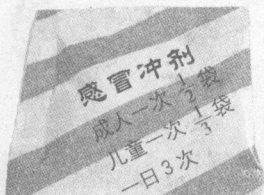 感冒冲剂
成人一次1/2袋
儿童一次1/3袋
一日3次